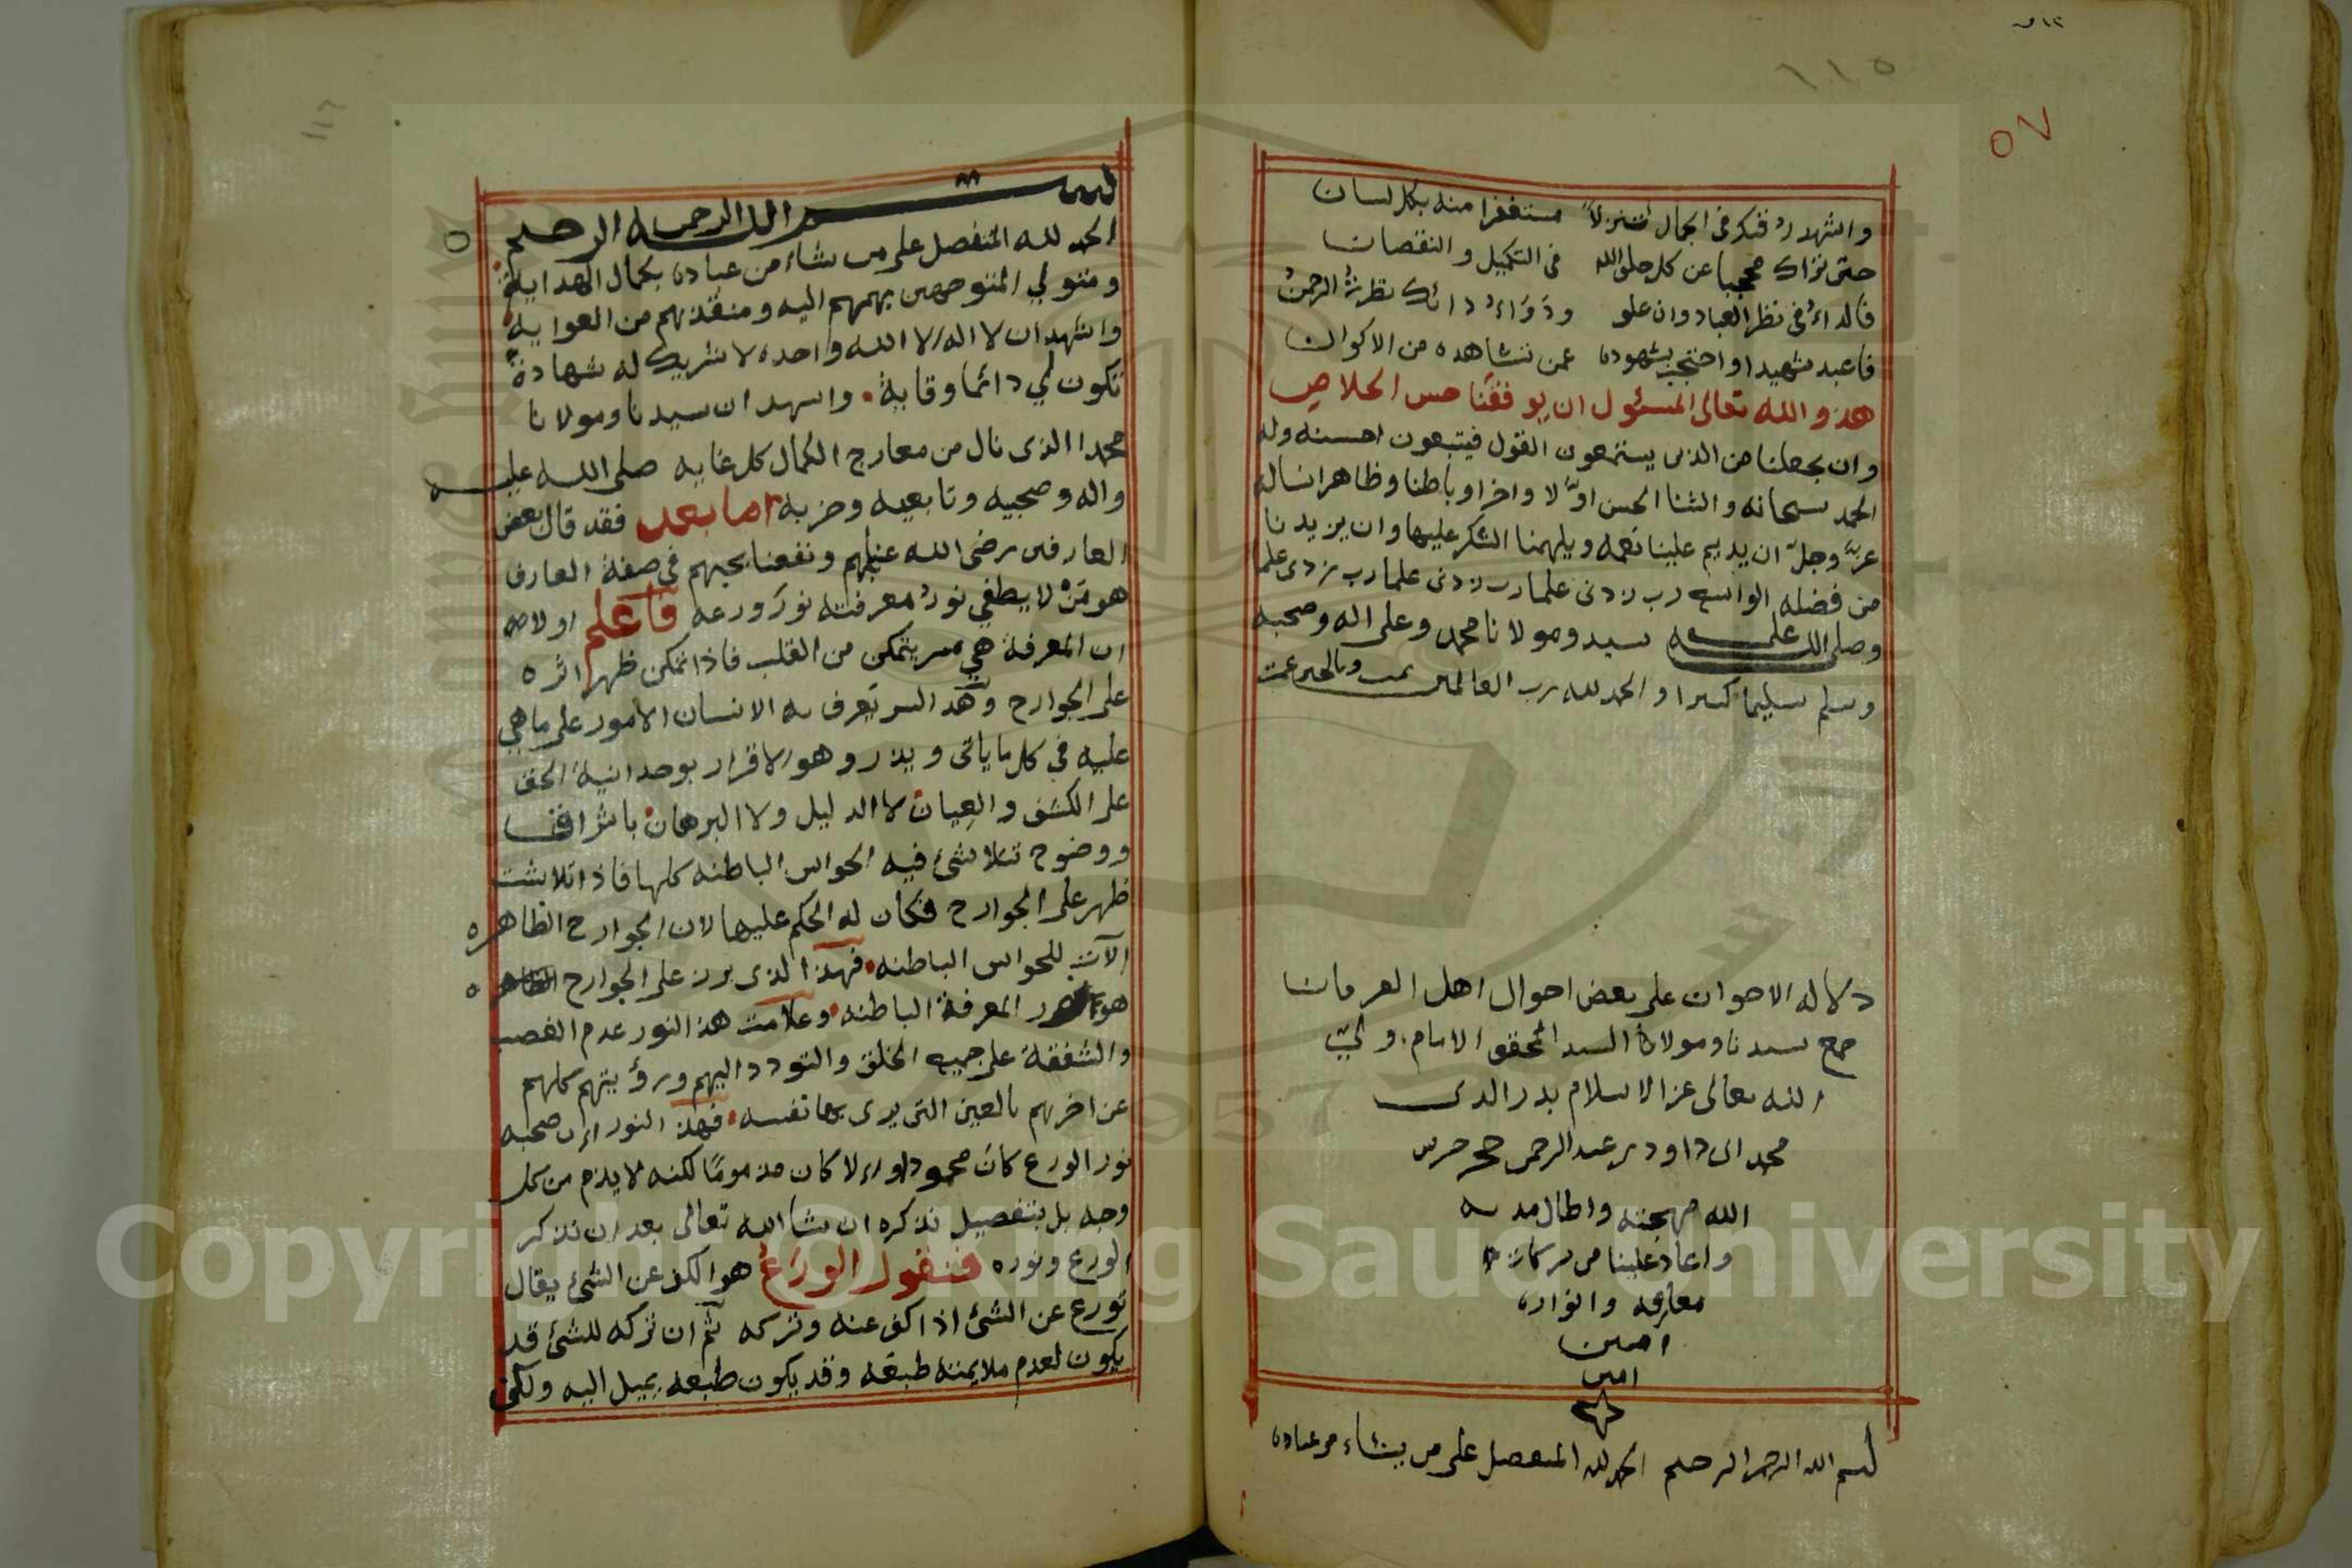 ١١٥
٥٧
والشهد رد فتكر في الجمال تنزلاً مستغفرا منه بكل لسان
حتى تراك محجبا عن كل خلق الله في التكميل والنقصان
فالداء في نظر العباد وان علو ودواء دائك نظرة الرحمن
فاعبد شهيدا واحتجب بشهوده عمن تشاهده من الاكوان
هذ والله تعالى المسئول ان يوفقنا حسن الخلاص
وان يجعلنا من الذين يستمعون القول فيتبعون احسنه وله
الحمد سبحانه والثنا الحسن اولا واخرا وباطنا وظاهرا نساله
عز وجل ان يديم علينا نعمه ويلهمنا الشكر عليها وان يزيدنا
من فضله الواسع رب زدنى علما رب زدنى علما رب زدنى علما
وصلى الله على سيد ومولانا محمد وعلى اله وصحبه
وسلم تسليما كثيرا والحمد لله رب العالمين تمت وبالخير عمت
دلالة الاخوان على بعض احوال اهل العرفان
جمع سيدنا ومولانا السيد المحقق الامام ولي
الله تعالى عز الاسلام بدر الدين
محمد ابن داود بن عبد الرحمن حجر حرس
الله مهجته واطال مدته
واعاد علينا من بركاته
معارفه وانواره
امين
امين
بسم الله الرحمن الرحيم الحمد لله المتفضل على من يشاء من عباده
١١٦
بسم الله الرحمن الرحيم
الحمد لله المتفضل على من يشاء من عباده بكمال الهداية
ومتولي المتوجهين بهمهم اليه ومنقذهم من الغواية
واشهد ان لا اله الا الله واحده لا شريك له شهادة
تكون لي دائما وقاية واشهد ان سيدنا ومولانا
محمدا الذى نال من معارج الكمال كل غايه صلى الله عليه
واله وصحبه وتابعيه وحزبه اما بعد فقد قال بعض
العارفين رضى الله عنهم ونفعنا بحبهم في صفة العارف
هو من لا يطفي نور معرفته نور ورعه فاعلم اولا
ان المعرفة هي سر يتمكن من القلب فاذا تمكن ظهر اثره
على الجوارح وهذ السر يعرف به الانسان الامور على ما هي
عليه في كل ما ياتى ويذر وهو الاقرار بوحدانية الحق
على الكشف والعيان لا الدليل ولا البرهان باشراق
ووضوح تتلاشى فيه الحواس الباطنه كلها فاذا تلاشت
ظهر على الجوارح فكان له الحكم عليها لان الجوارح الظاهره
الآت للحواس الباطنه فهذا الذى برز على الجوارح الظاهره
هو نور المعرفة الباطنه وعلامت هذ النور عدم الغضب
والشفقة على جميع الخلق والتودد اليهم ورؤيتهم كلهم
عن اخرهم بالعين التى يرى بها نفسه فهذ النور ان صحبه
نور الورع كان محمودا والا كان مذموما لكنه لا يذم من كل
وجه بل بتفصيل نذكره ان شا الله تعالى بعد ان نذكر
الورع ونوره فنقول الورع هو الكف عن الشئ يقال
تورع عن الشئ اذا كف عنه وتركه ثم ان تركه للشئ قد
يكون لعدم ملايمته طبعه وقد يكون طبعه يميل اليه ولكن
Copyright © King Saud University
1957